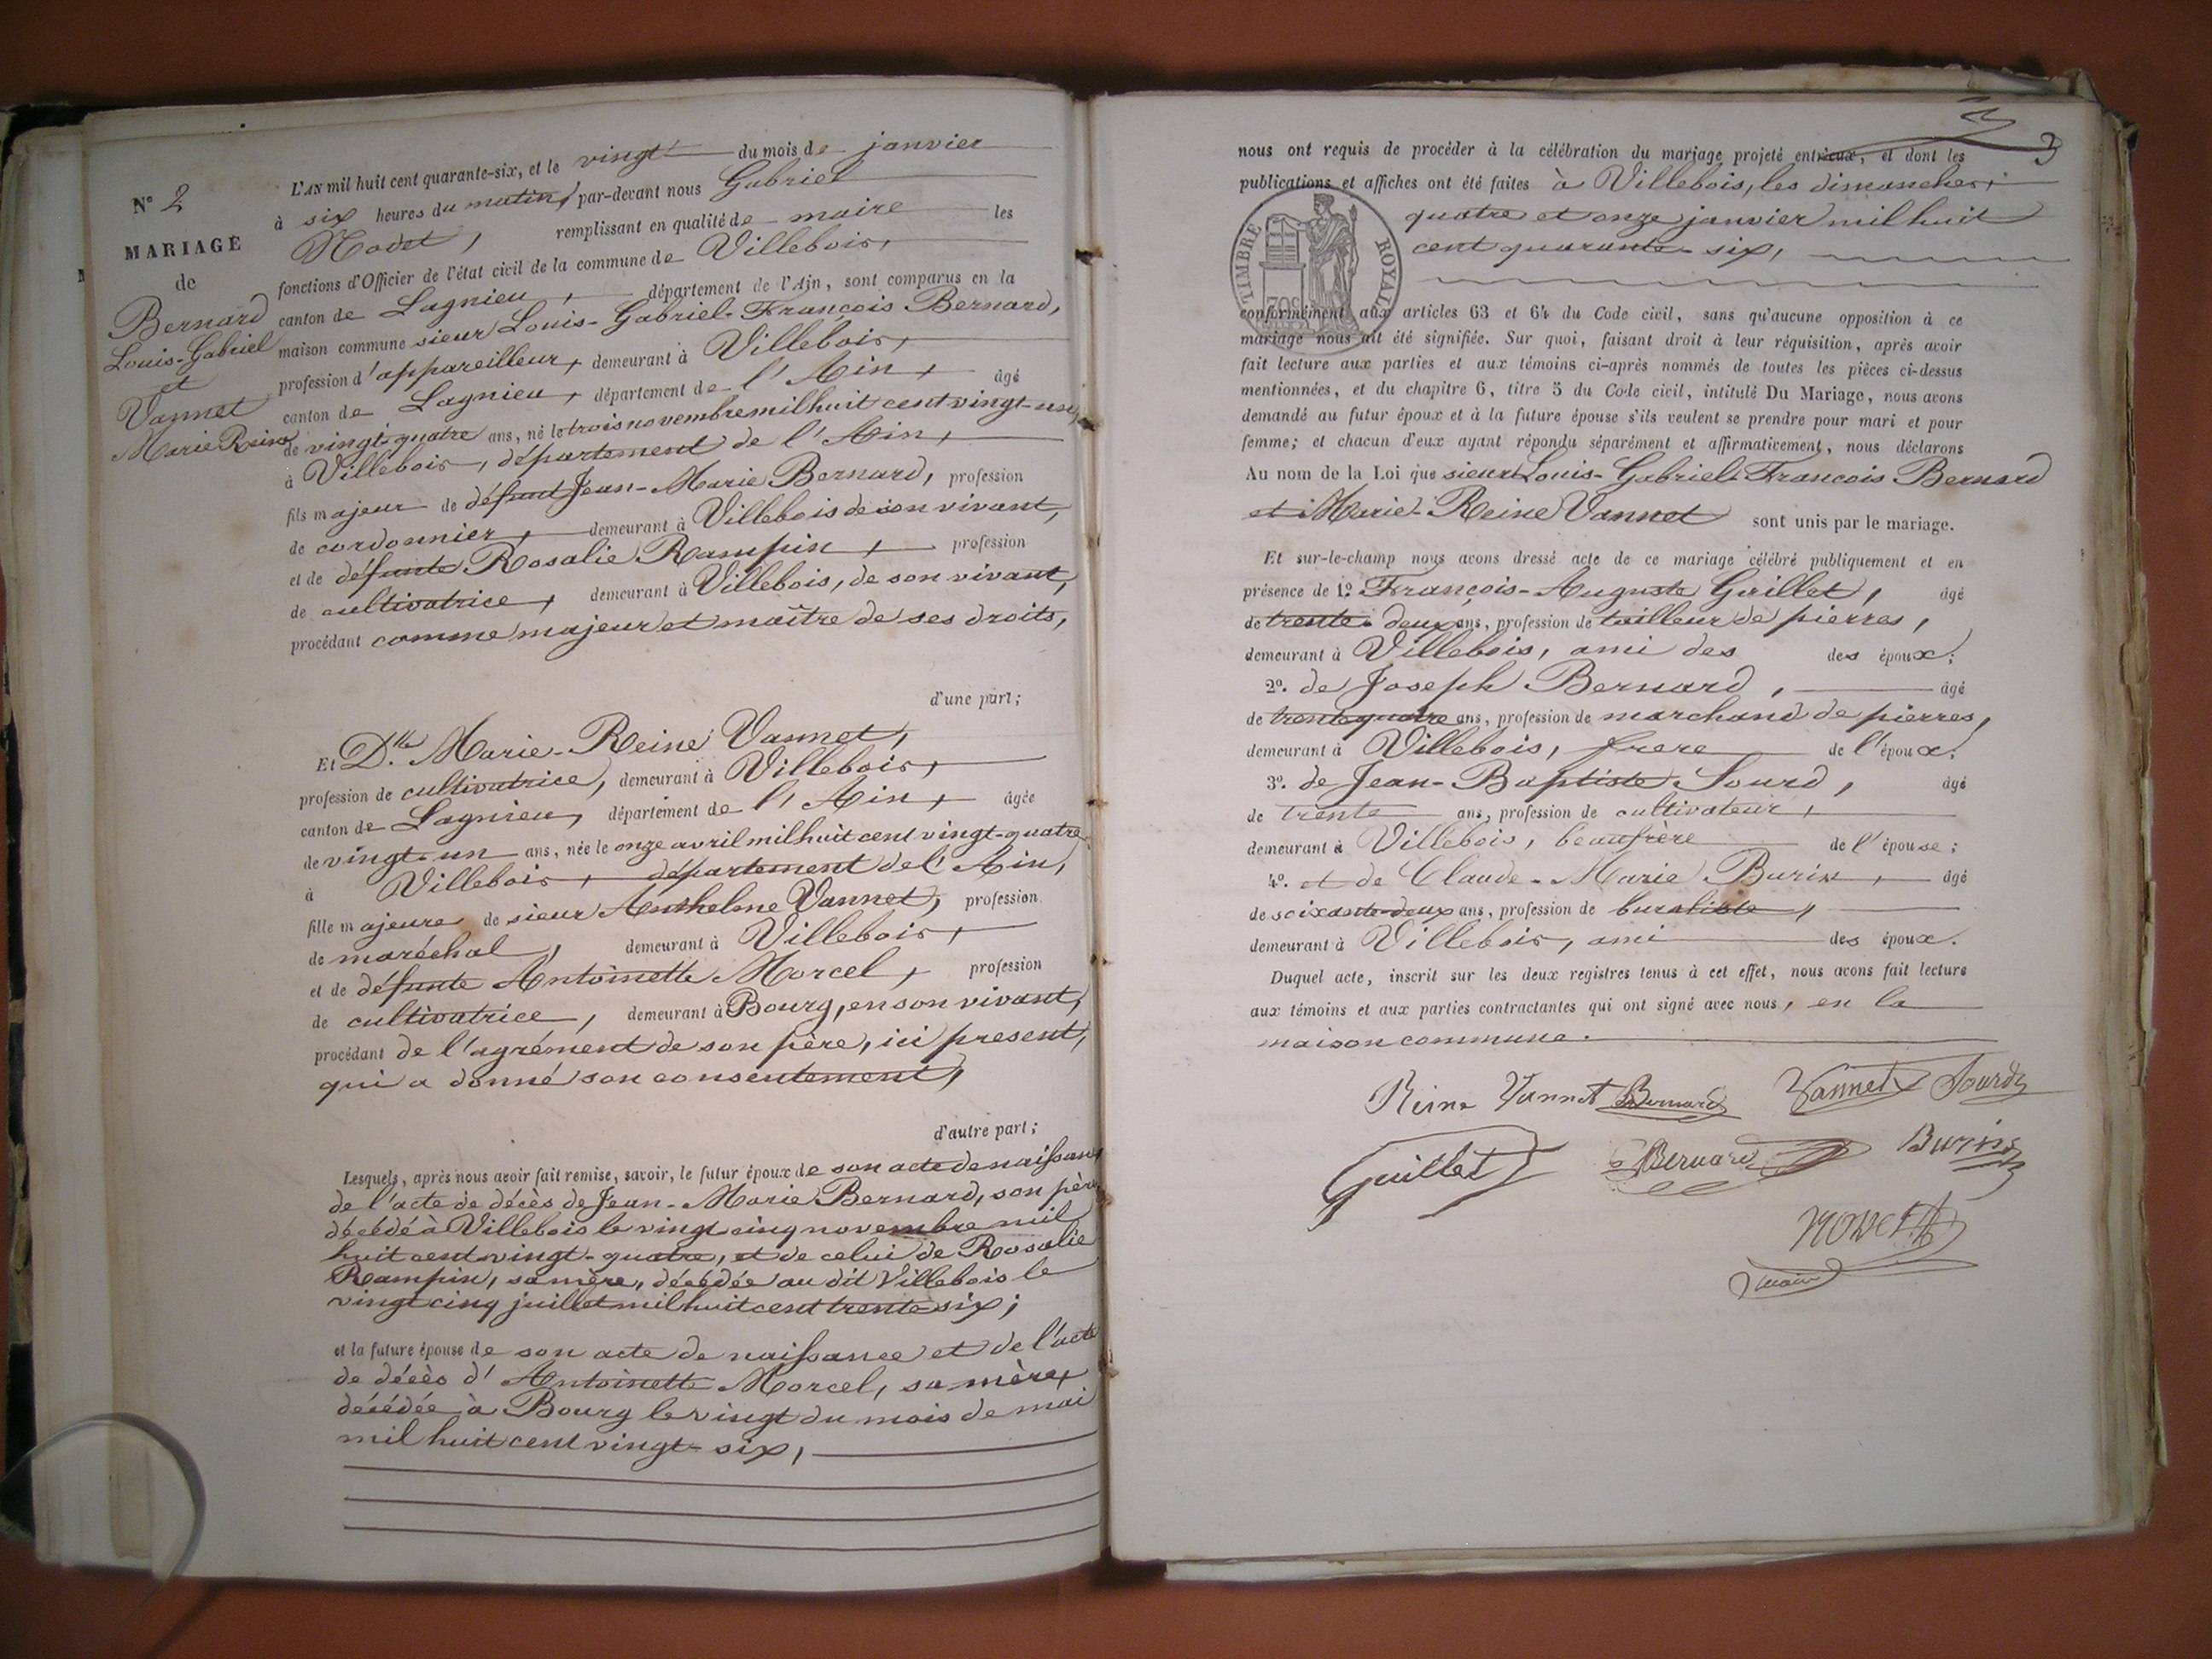 N° 2
MARIAGE
de
Bernard
Louis-Gabriel
et
Vannet
Marie Reine
L'AN mil huit cent quarante-six, et le vingt du mois de janvier
à six heures du matin, par-devant nous Gabriel
Nodet, remplissant en qualité de maire les
fonctions d'Officier de l'état civil de la commune de Villebois,
canton de Lagnieu, département de l'Ain, sont comparus en la
maison commune sieur Louis-Gabriel-François Bernard,
profession d'appareilleur, demeurant à Villebois,
canton de Lagnieu, département de l'Ain, âgé
de vingt-quatre ans, né le trois novembre mil huit cent vingt-un,
à Villebois, département de l'Ain,
fils majeur de défunt Jean-Marie Bernard, profession
de cordonnier, demeurant à Villebois de son vivant,
et de défunte Rosalie Rampin, profession
de cultivatrice, demeurant à Villebois, de son vivant,
procédant comme majeur et maître de ses droits,
d'une part;
Et Dlle Marie-Reine Vannet,
profession de cultivatrice, demeurant à Villebois,
canton de Lagnieu, département de l'Ain, âgée
de vingt-un ans, née le onze avril mil huit cent vingt-quatre
à Villebois, département de l'Ain,
fille majeure de sieur Anthelme Vannet, profession
de maréchal, demeurant à Villebois,
et de défunte Antoinette Morcel, profession
de cultivatrice, demeurant à Bourg, en son vivant,
procédant de l'agrément de son père, ici present,
qui a donné son consentement,
d'autre part;
Lesquels, après nous avoir fait remise, savoir, le futur époux de son acte de naissance
de l'acte de décès de Jean-Marie Bernard, son père
décédé à Villebois le vingt cinq novembre mil
huit cent vingt-quatre, et de celui de Rosalie
Rampin, sa mère, décédée au dit Villebois le
vingt cinq juillet mil huit cent trente six;
et la future épouse de son acte de naissance et de l'acte
de décès d'Antoinette Morcel, sa mère,
décédée à Bourg le vingt du mois de mai
mil huit cent vingt-six,
3
nous ont requis de procéder à la célébration du mariage projeté entr'eux, et dont les
publications et affiches ont été faites à Villebois, les dimanches,
quatre et onze janvier mil huit
cent quarante-six,
TIMBRE ROYAL
70c
conformément aux articles 63 et 64 du Code civil, sans qu'aucune opposition à ce
mariage nous ait été signifiée. Sur quoi, faisant droit à leur réquisition, après avoir
fait lecture aux parties et aux témoins ci-après nommés de toutes les pièces ci-dessus
mentionnées, et du chapitre 6, titre 5 du Code civil, intitulé Du Mariage, nous avons
demandé au futur époux et à la future épouse s'ils veulent se prendre pour mari et pour
femme; et chacun d'eux ayant répondu séparément et affirmativement, nous déclarons
Au nom de la Loi que sieur Louis-Gabriel-François Bernard
et Marie-Reine Vannet sont unis par le mariage.
Et sur-le-champ nous avons dressé acte de ce mariage célébré publiquement et en
présence de 1° François-Auguste Guillet, âgé
de trente-deux ans, profession de tailleur de pierres,
demeurant à Villebois, ami des des époux;
2°. de Joseph Bernard, âgé
de trente quatre ans, profession de marchand de pierres,
demeurant à Villebois, frere de l'époux;
3°. de Jean-Baptiste Sourd, âgé
de trente ans, profession de cultivateur,
demeurant à Villebois, beaufrère de l'épouse;
4°. et de Claude-Marie Burin, âgé
de soixante-deux ans, profession de buraliste,
demeurant à Villebois, ami des époux.
Duquel acte, inscrit sur les deux registres tenus à cet effet, nous avons fait lecture
aux témoins et aux parties contractantes qui ont signé avec nous, en la
maison commune.
Reine Vannet Bernard Vannet Sourd
Guillet Bernard Burin
Nodet
maire